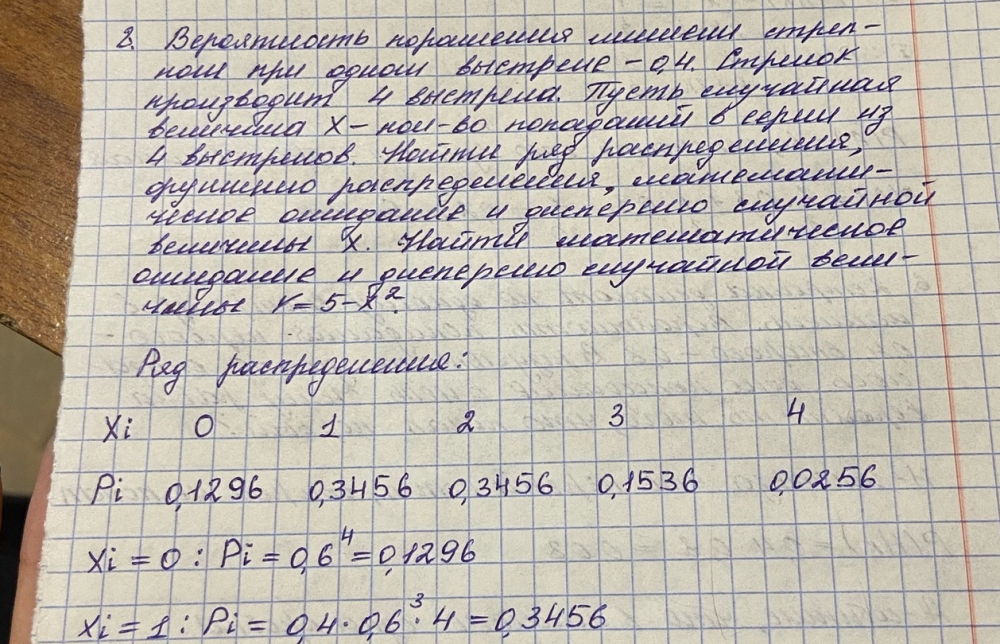 2. Вероятность поражения мишени стрел-
ком при одном выстреле - 0,4. Стрелок
производит 4 выстрела. Пусть случайная
величина X - кол-во попаданий в серии из
4 выстрелов. Найти ряд распределения,
функцию распределения, математи-
ческое ожидание и дисперсию случайной
величины X. Найти математическое
ожидание и дисперсию случайной вели-
чины Y = 5 - X².
Ряд распределения:
Xi 0 1 2 3 4
Pi 0,1296 0,3456 0,3456 0,1536 0,0256
Xi = 0 : Pi = 0,6⁴ = 0,1296
Xi = 1 : Pi = 0,4 · 0,6³ · 4 = 0,3456